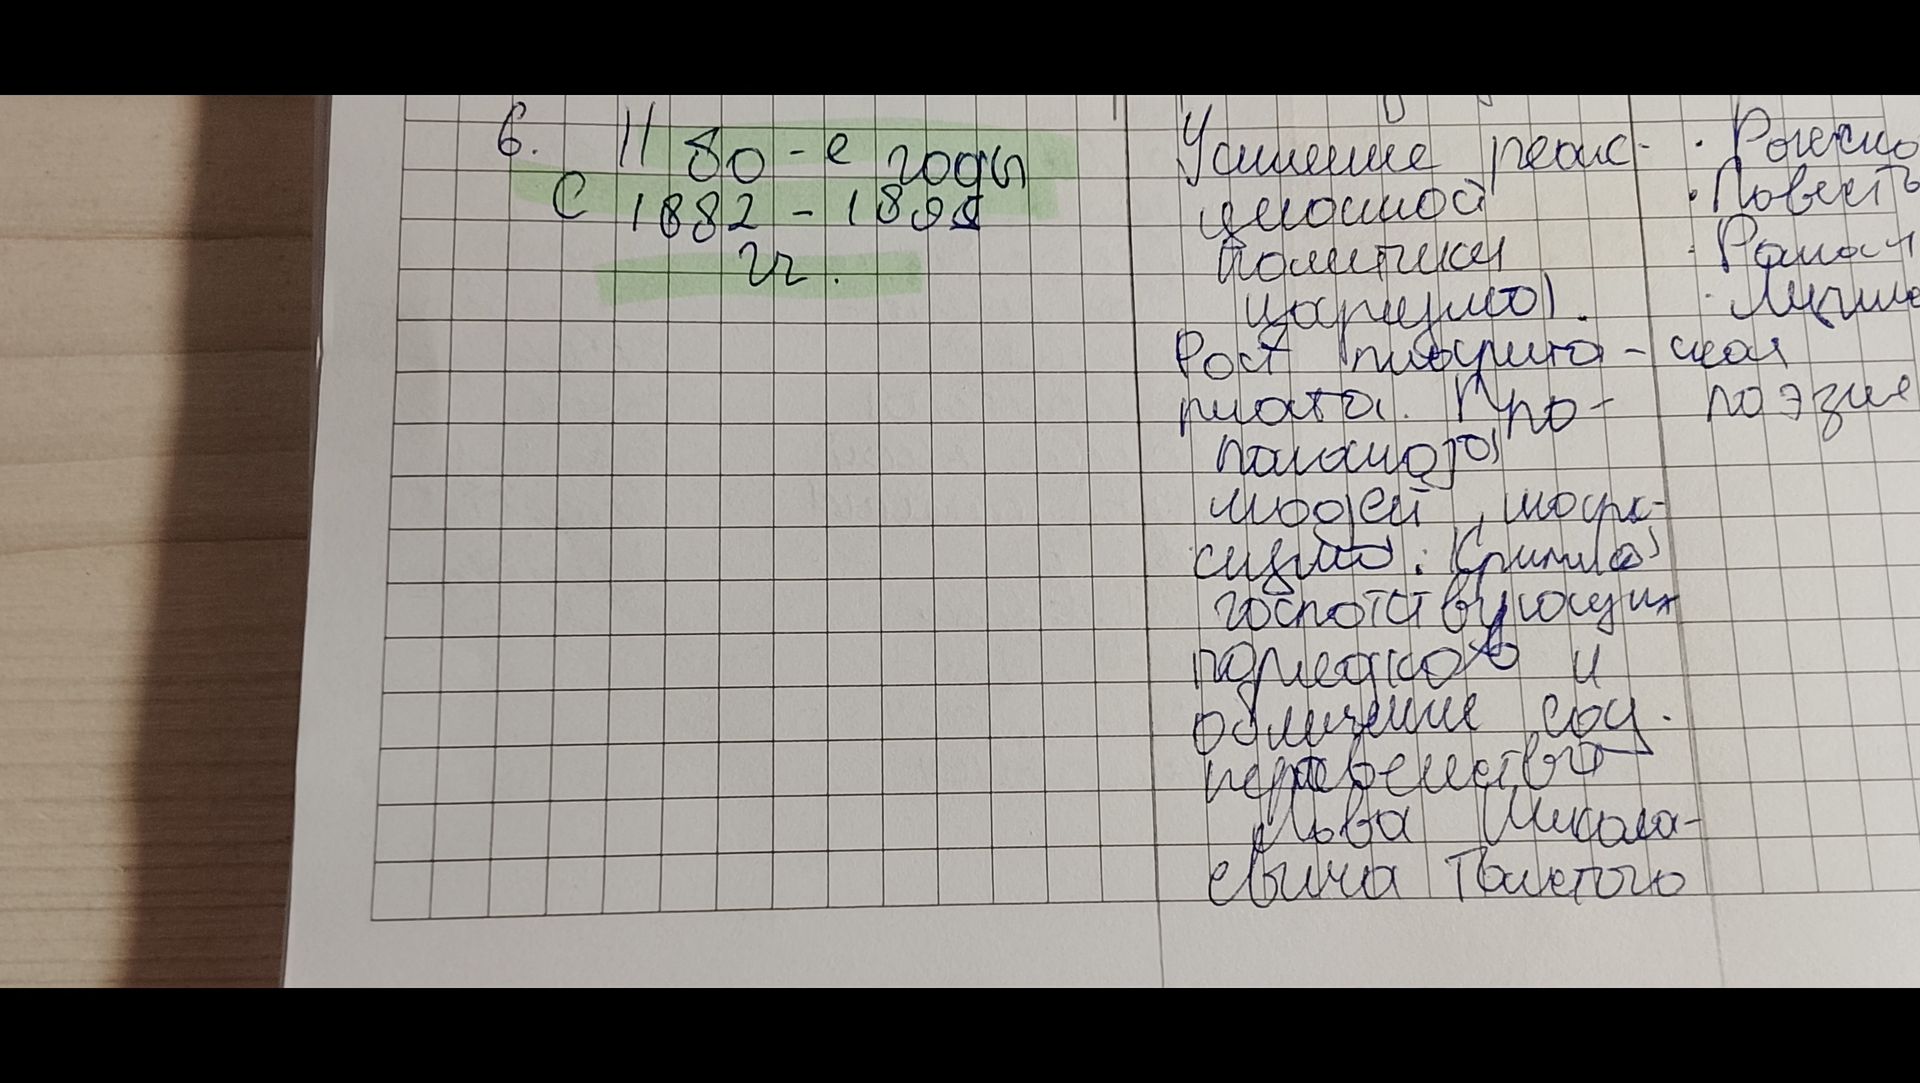 6. || 80-е годы
С 1882 - 1895
гг.
Усиление реак-
ционной
политики
царизма.
Рост пролета-
риата. Про-
паганда
идей марк-
сизма.
господствующих
порядков и
обличение соц.
неравенства
Льва Никола-
евича Толстого
· Расска
· Повесть
· Роман
· Лириче
ская
поэзие